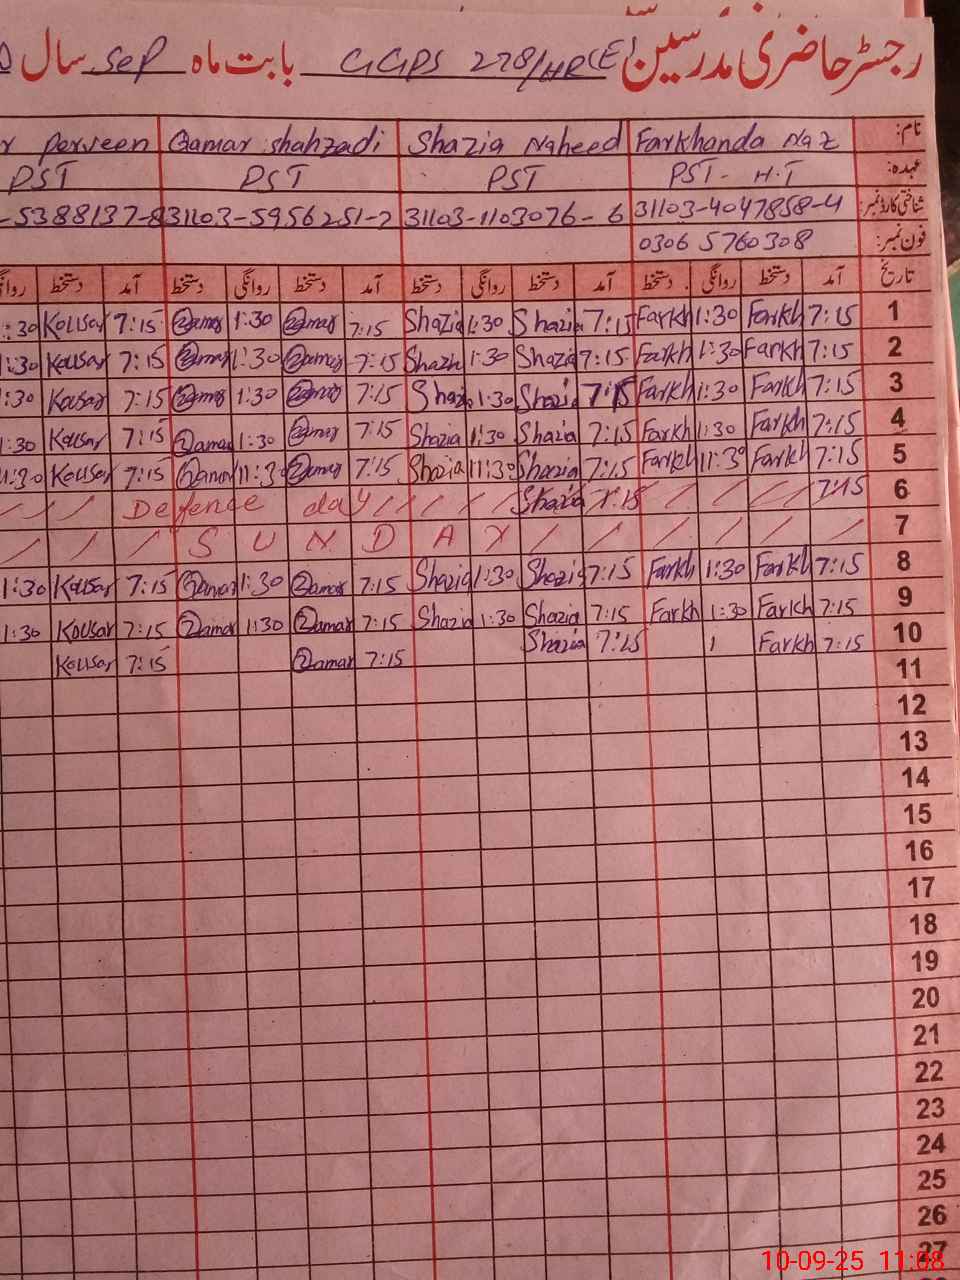 رجسٹر حاضری مدرسین GGPS 278/HR(E) بابت ماہ Sep سال
نام: Farkhanda Naz Shazia Naheed Qamar shahzadi Perveen
عہدہ: PST- H.T PST PST PST
شناختی کارڈ نمبر: 31103-4047858-4 31103-1103076-6 31103-5956251-2 -5388137-8
فون نمبر: 0306 5760308
تاریخ آمد دستخط روانگی دستخط آمد دستخط روانگی دستخط آمد دستخط روانگی دستخط آمد دستخط
1 7:15 Farkh 1:30 Farkh 7:15 Shazia 1:30 Shazia 7:15 Qamar 1:30 Qamar 7:15 Kousar 1:30
2 7:15 Farkh 1:30 Farkh 7:15 Shazia 1:30 Shazia 7:15 Qamar 1:30 Qamar 7:15 Kousar 1:30
3 7:15 Farkh 1:30 Farkh 7:15 Shazia 1:30 Shazi 7:15 Qamar 1:30 Qamar 7:15 Kousar 1:30
4 7:15 Farkh 1:30 Farkh 7:15 Shazia 1:30 Shazia 7:15 Qamar 1:30 Qamar 7:15 Kousar 1:30
5 7:15 Farkh 11:30 Farkh 7:15 Shazia 11:30 Shazia 7:15 Qamar 11:30 Qamar 7:15 Kousar 11:30
6 7:15 7:15 Shazia Defence day
7 SUNDAY
8 7:15 Farkh 1:30 Farkh 7:15 Shazia 1:30 Shazia 7:15 Qamar 1:30 Qamar 7:15 Kousar 1:30
9 7:15 Farkh 1:30 Farkh 7:15 Shazia 1:30 Shazia 7:15 Qamar 1:30 Qamar 7:15 Kousar 1:30
10 7:15 Farkh 7:15 Shazia 7:15 Qamar 7:15 Kousar
11
12
13
14
15
16
17
18
19
20
21
22
23
24
25
26
27
10-09-25 11:08